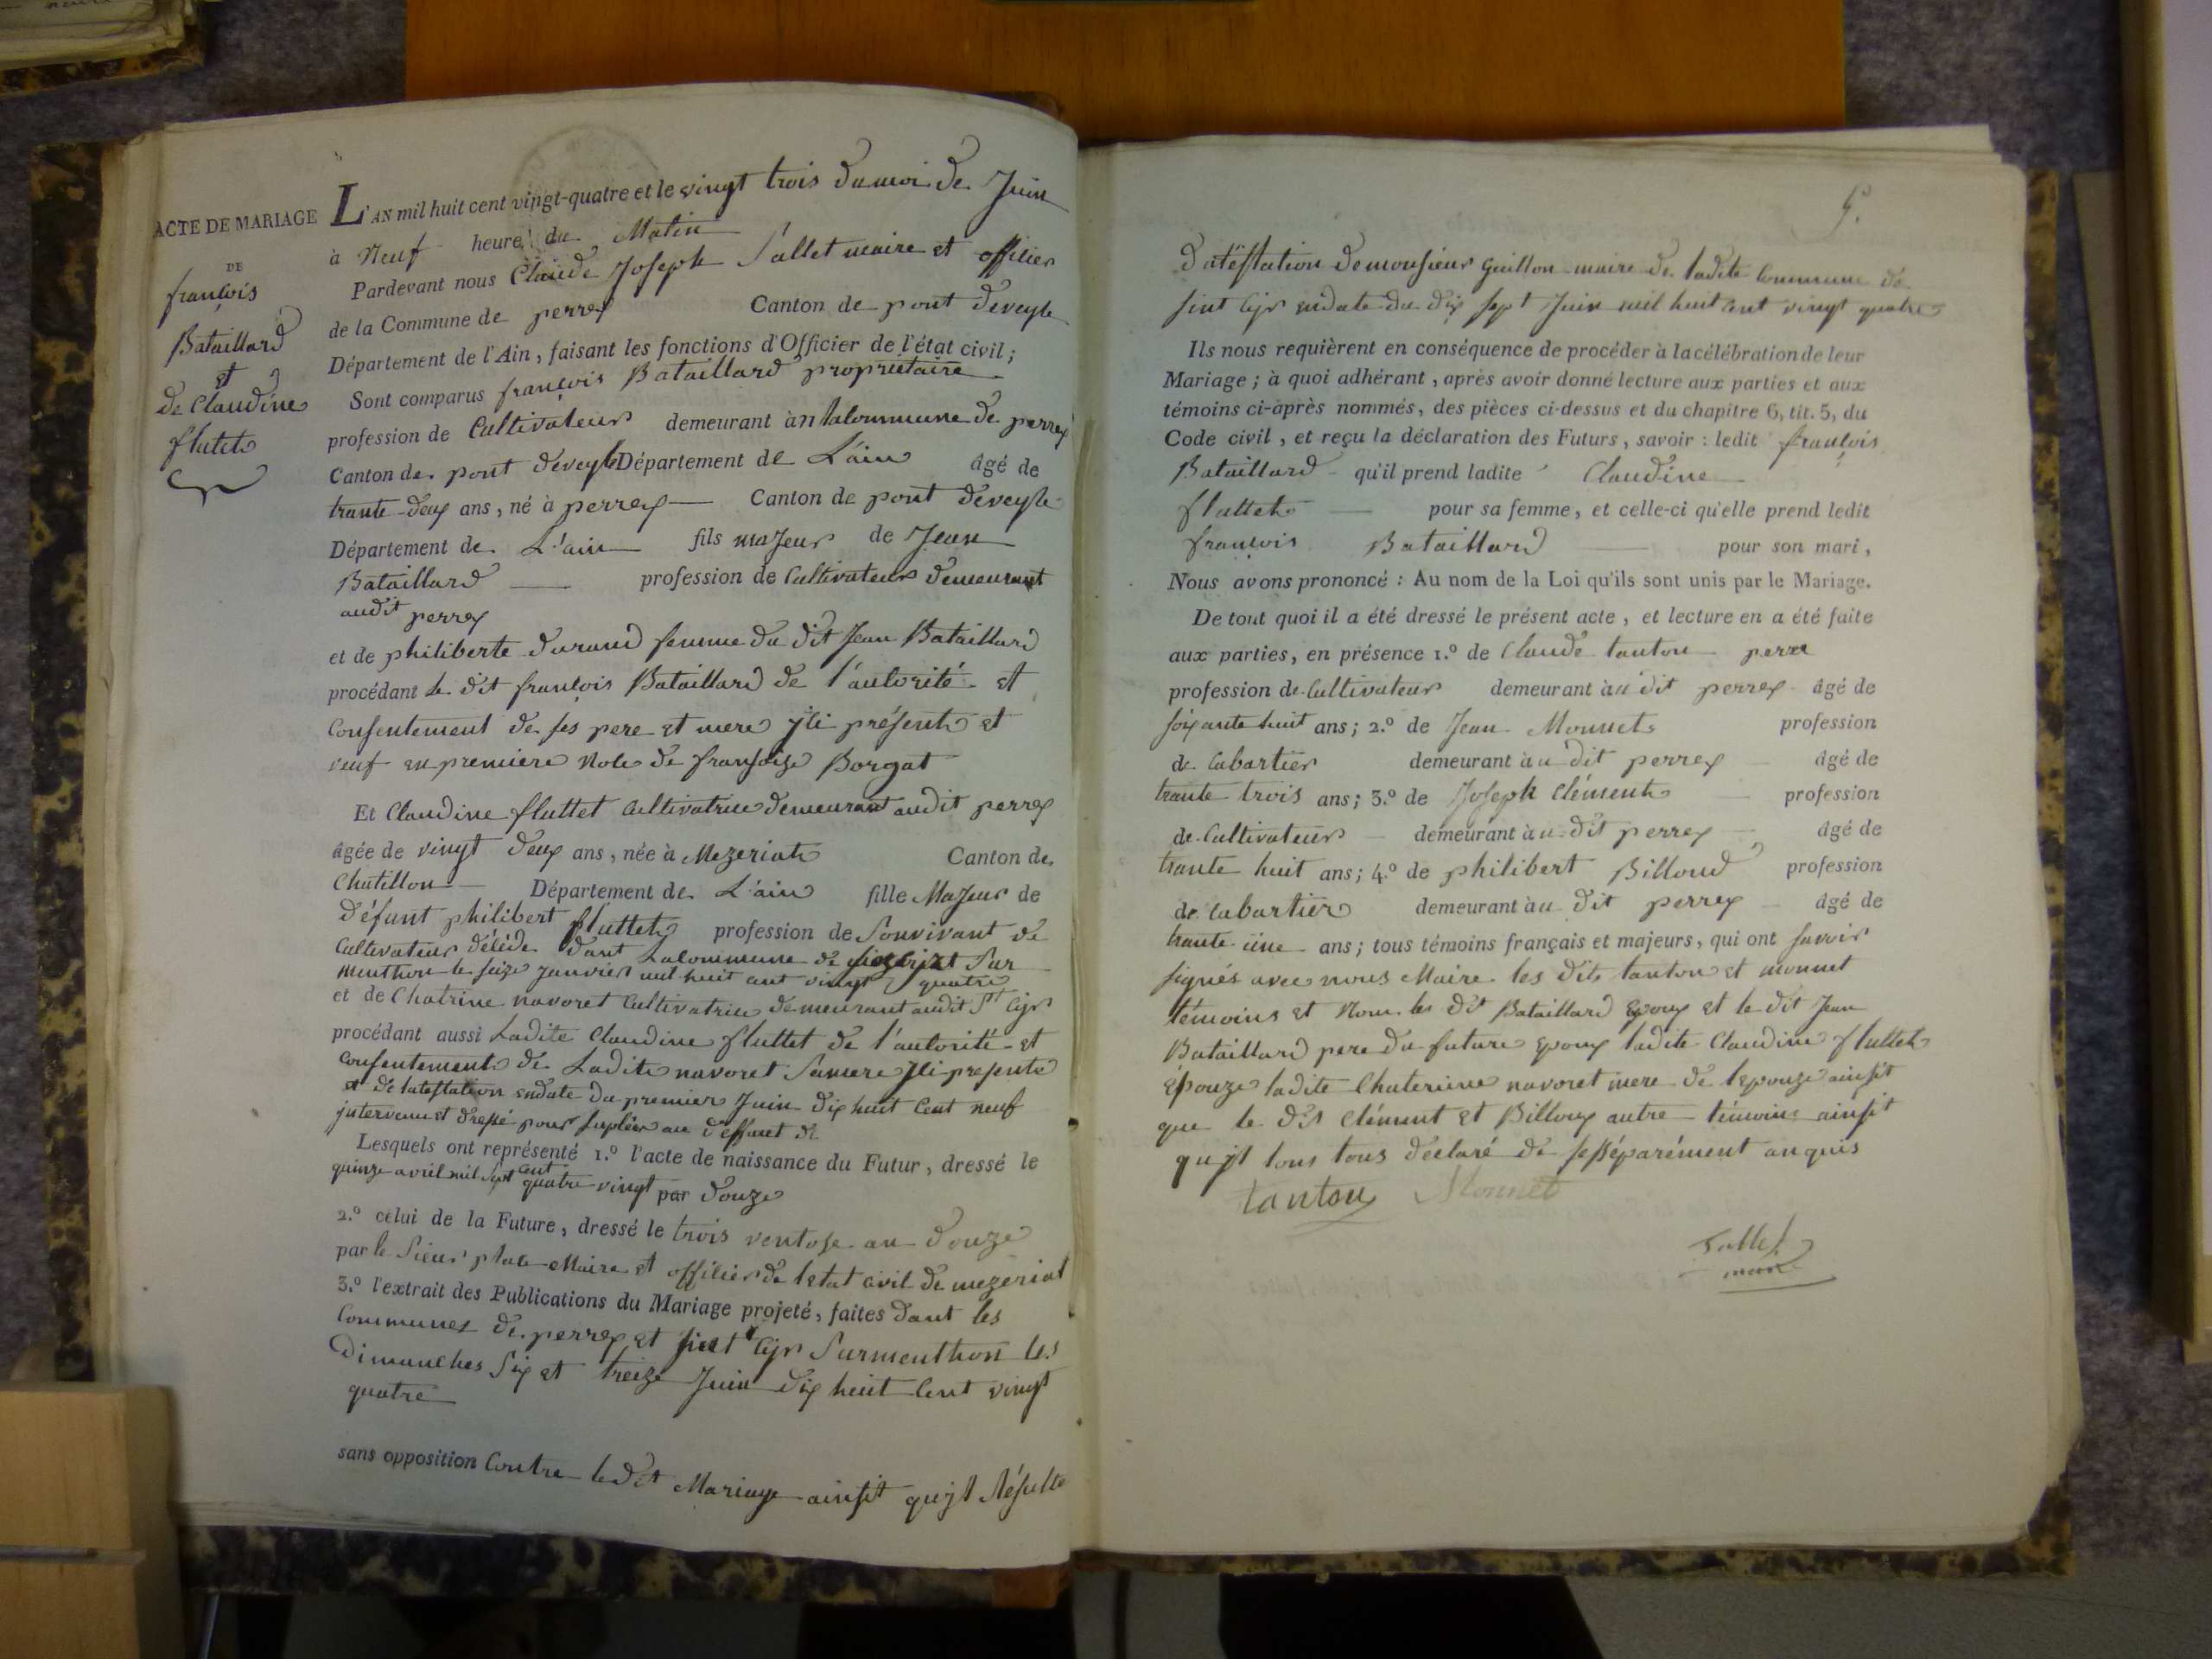 ACTE DE MARIAGE
DE
françois
Bataillard
et
de Claudine
flutet
L'AN mil huit cent vingt-quatre et le vingt trois du moi de Juin
à Neuf heure du Matin
Pardevant nous Claude Joseph Sallet maire et officier
de la Commune de perrex Canton de pont deveyle
Département de l'Ain, faisant les fonctions d'Officier de l'état civil;
Sont comparus françois Bataillard propriétaire
profession de Cultivateur demeurant àn lacommune de perrex
Canton de pont deveyle Département de L'ain âgé de
trante-deux ans, né à perrex Canton de pont deveyle
Département de L'ain fils majeur de Jean
Bataillard profession de Cultivateur demeurant
audit perrex
et de philiberte durand femme du dit Jean Bataillard
procédant le dit françois Bataillard de l'autorité et
Consentement de ses pere et mere jci présent et
veuf en premiere Nole de françoise Borgat
Et Claudine fluttet Cultivatrice demeurant audit perrex
âgée de vingt deux ans, née à Mezeriat Canton de
Chatillon Département de L'ain fille Majeur de
défunt philibert fluttet profession de Sonvivant de
Cultivateur décédé dant Lacommune de Sur
menthon le seize janvier mil huit cent vingt quatre
et de Chatrine navoret Cultivatrice demeurant audit St Cyr
procédant aussi Ladite Claudine fluttet de l'autorité et
Consentement de Ladite navoret Samere jci presente
et de latestation endate du premier Juin dix huit Cent neuf
intervenu et dressé pour supléer au deffaut de
Lesquels ont représenté 1.º l'acte de naissance du Futur, dressé le
quinze avril mil sept cent quatre vingt par douze
2.º celui de la Future, dressé le trois ventose an douze
par le Sieur place Maire et officier de letat civil de mezeriat
3.º l'extrait des Publications du Mariage projeté, faites dant les
Communes de perrex et sint Cyr Surmenthon les
Dimanches six et treize Juin dix huit Cent vingt
quatre
sans opposition Contre ledit Mariage ainsit qujl Résulte
5.
datéstation de monsieur Guillon maire de ladite Commune de
sint Cyr endate du dix sept Juin mil huit cent vingt quatre
Ils nous requièrent en conséquence de procéder à la célébration de leur
Mariage; à quoi adhérant, après avoir donné lecture aux parties et aux
témoins ci-après nommés, des pièces ci-dessus et du chapitre 6, tit. 5, du
Code civil, et reçu la déclaration des Futurs, savoir: ledit françois
Bataillard qu'il prend ladite Claudine
fluttet pour sa femme, et celle-ci qu'elle prend ledit
françois Bataillard pour son mari,
Nous avons prononcé: Au nom de la Loi qu'ils sont unis par le Mariage.
De tout quoi il a été dressé le présent acte, et lecture en a été faite
aux parties, en présence 1.º de Claude tanton
profession de Cultivateur demeurant àu dit perrex âgé de
soixante huit ans; 2.º de Jean Monnet profession
de Cabartier demeurant àu dit perrex âgé de
trante trois ans; 3.º de Joseph Clément profession
de Cultivateur demeurant àu dit perrex âgé de
trante huit ans; 4.º de philibert Billoud profession
de Cabartier demeurant àu dit perrex âgé de
trante üne ans; tous témoins français et majeurs, qui ont savoir
signés avec nous Maire les dits tanton et monnet
témoins et Nom les dit Bataillard Epoux et le dit Jean
Bataillard pere du future epoux ladite Claudine fluttet
Épouze ladite Chaterine navoret mere de lepouze ainsit
que le dit Clément et Billoux autre témoins ainsit
qujl lont tous déclaré de sesséparément anquis
tanton Monnet
Sallet
maire